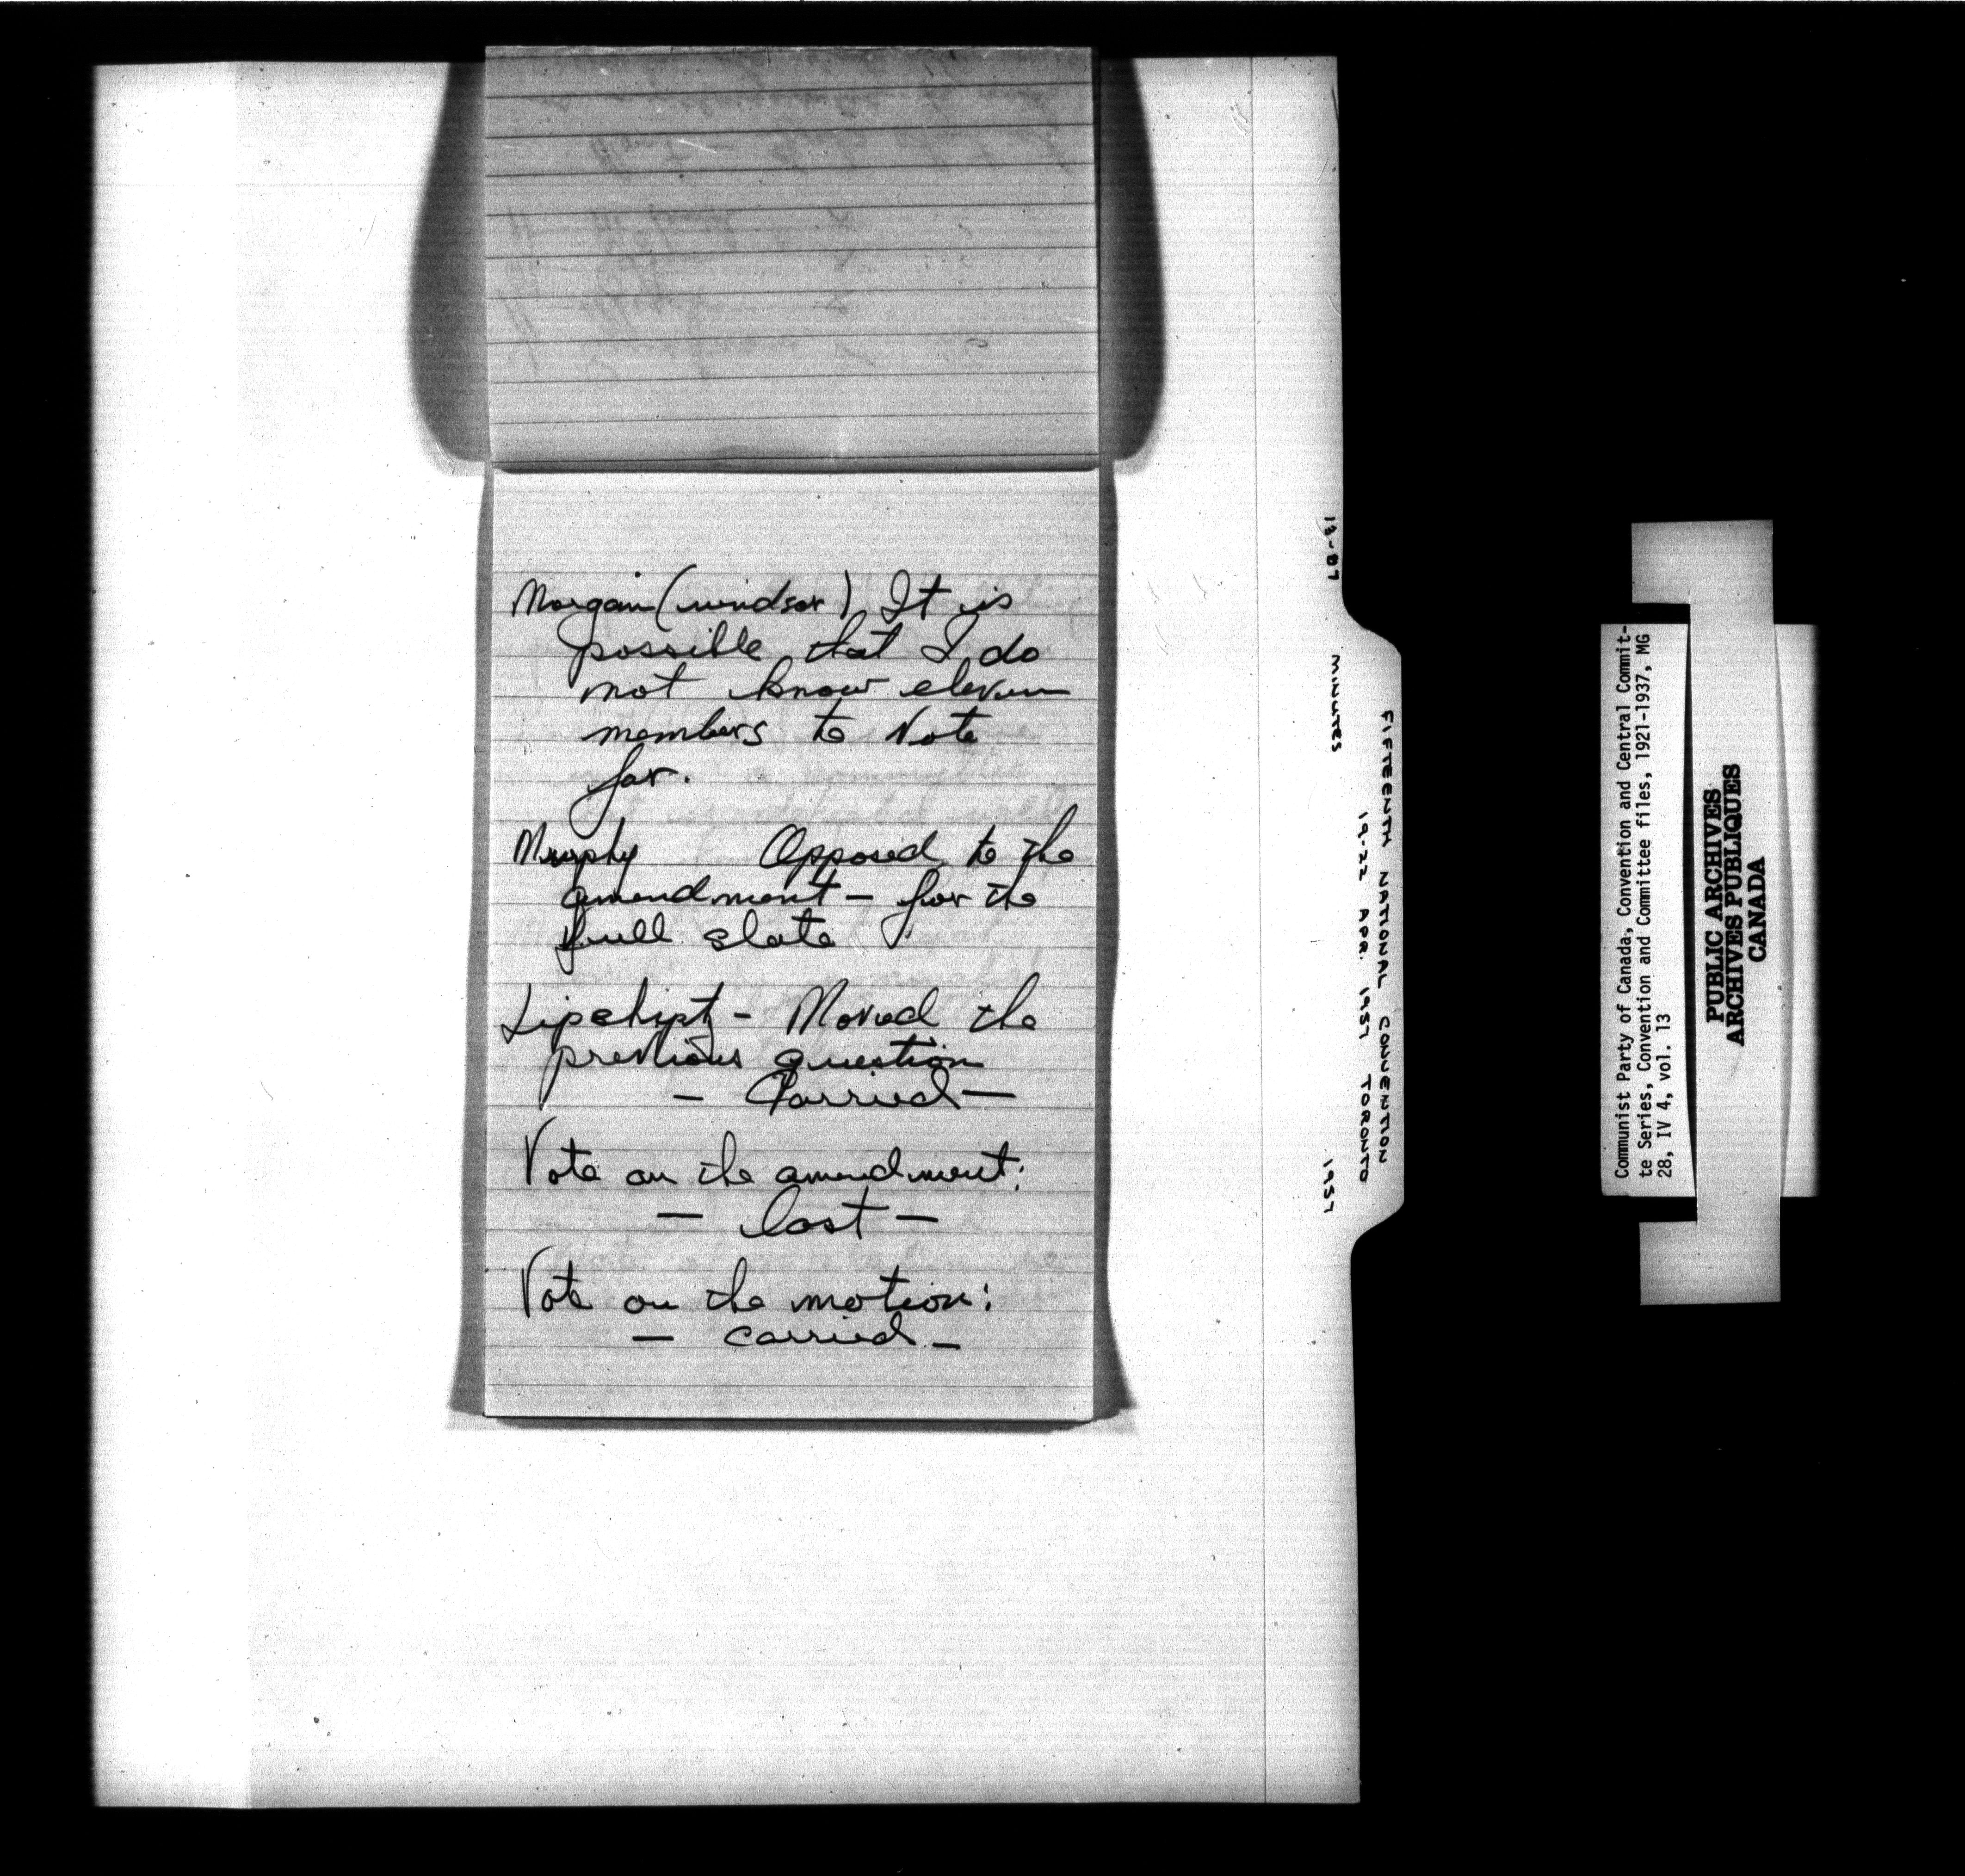 Morgan (windsor) It is
possible that I do
not know eleven
members to vote
for.
Murphy Opposed to the
amendment – for the
full slate
Lipshipt – Moved the
previous question
– Carried –
Vote on the amendment:
– lost –
Vote on the motion:
– carried –
13-07
MINUTES
1957
FIFTEENTH NATIONAL CONVENTION
19-22 APR. 1957 TORONTO
Communist Party of Canada, Convention and Central Commit-
te Series, Convention and Committee files, 1921-1937, MG
28, IV 4, vol. 13
PUBLIC ARCHIVES
ARCHIVES PUBLIQUES
CANADA